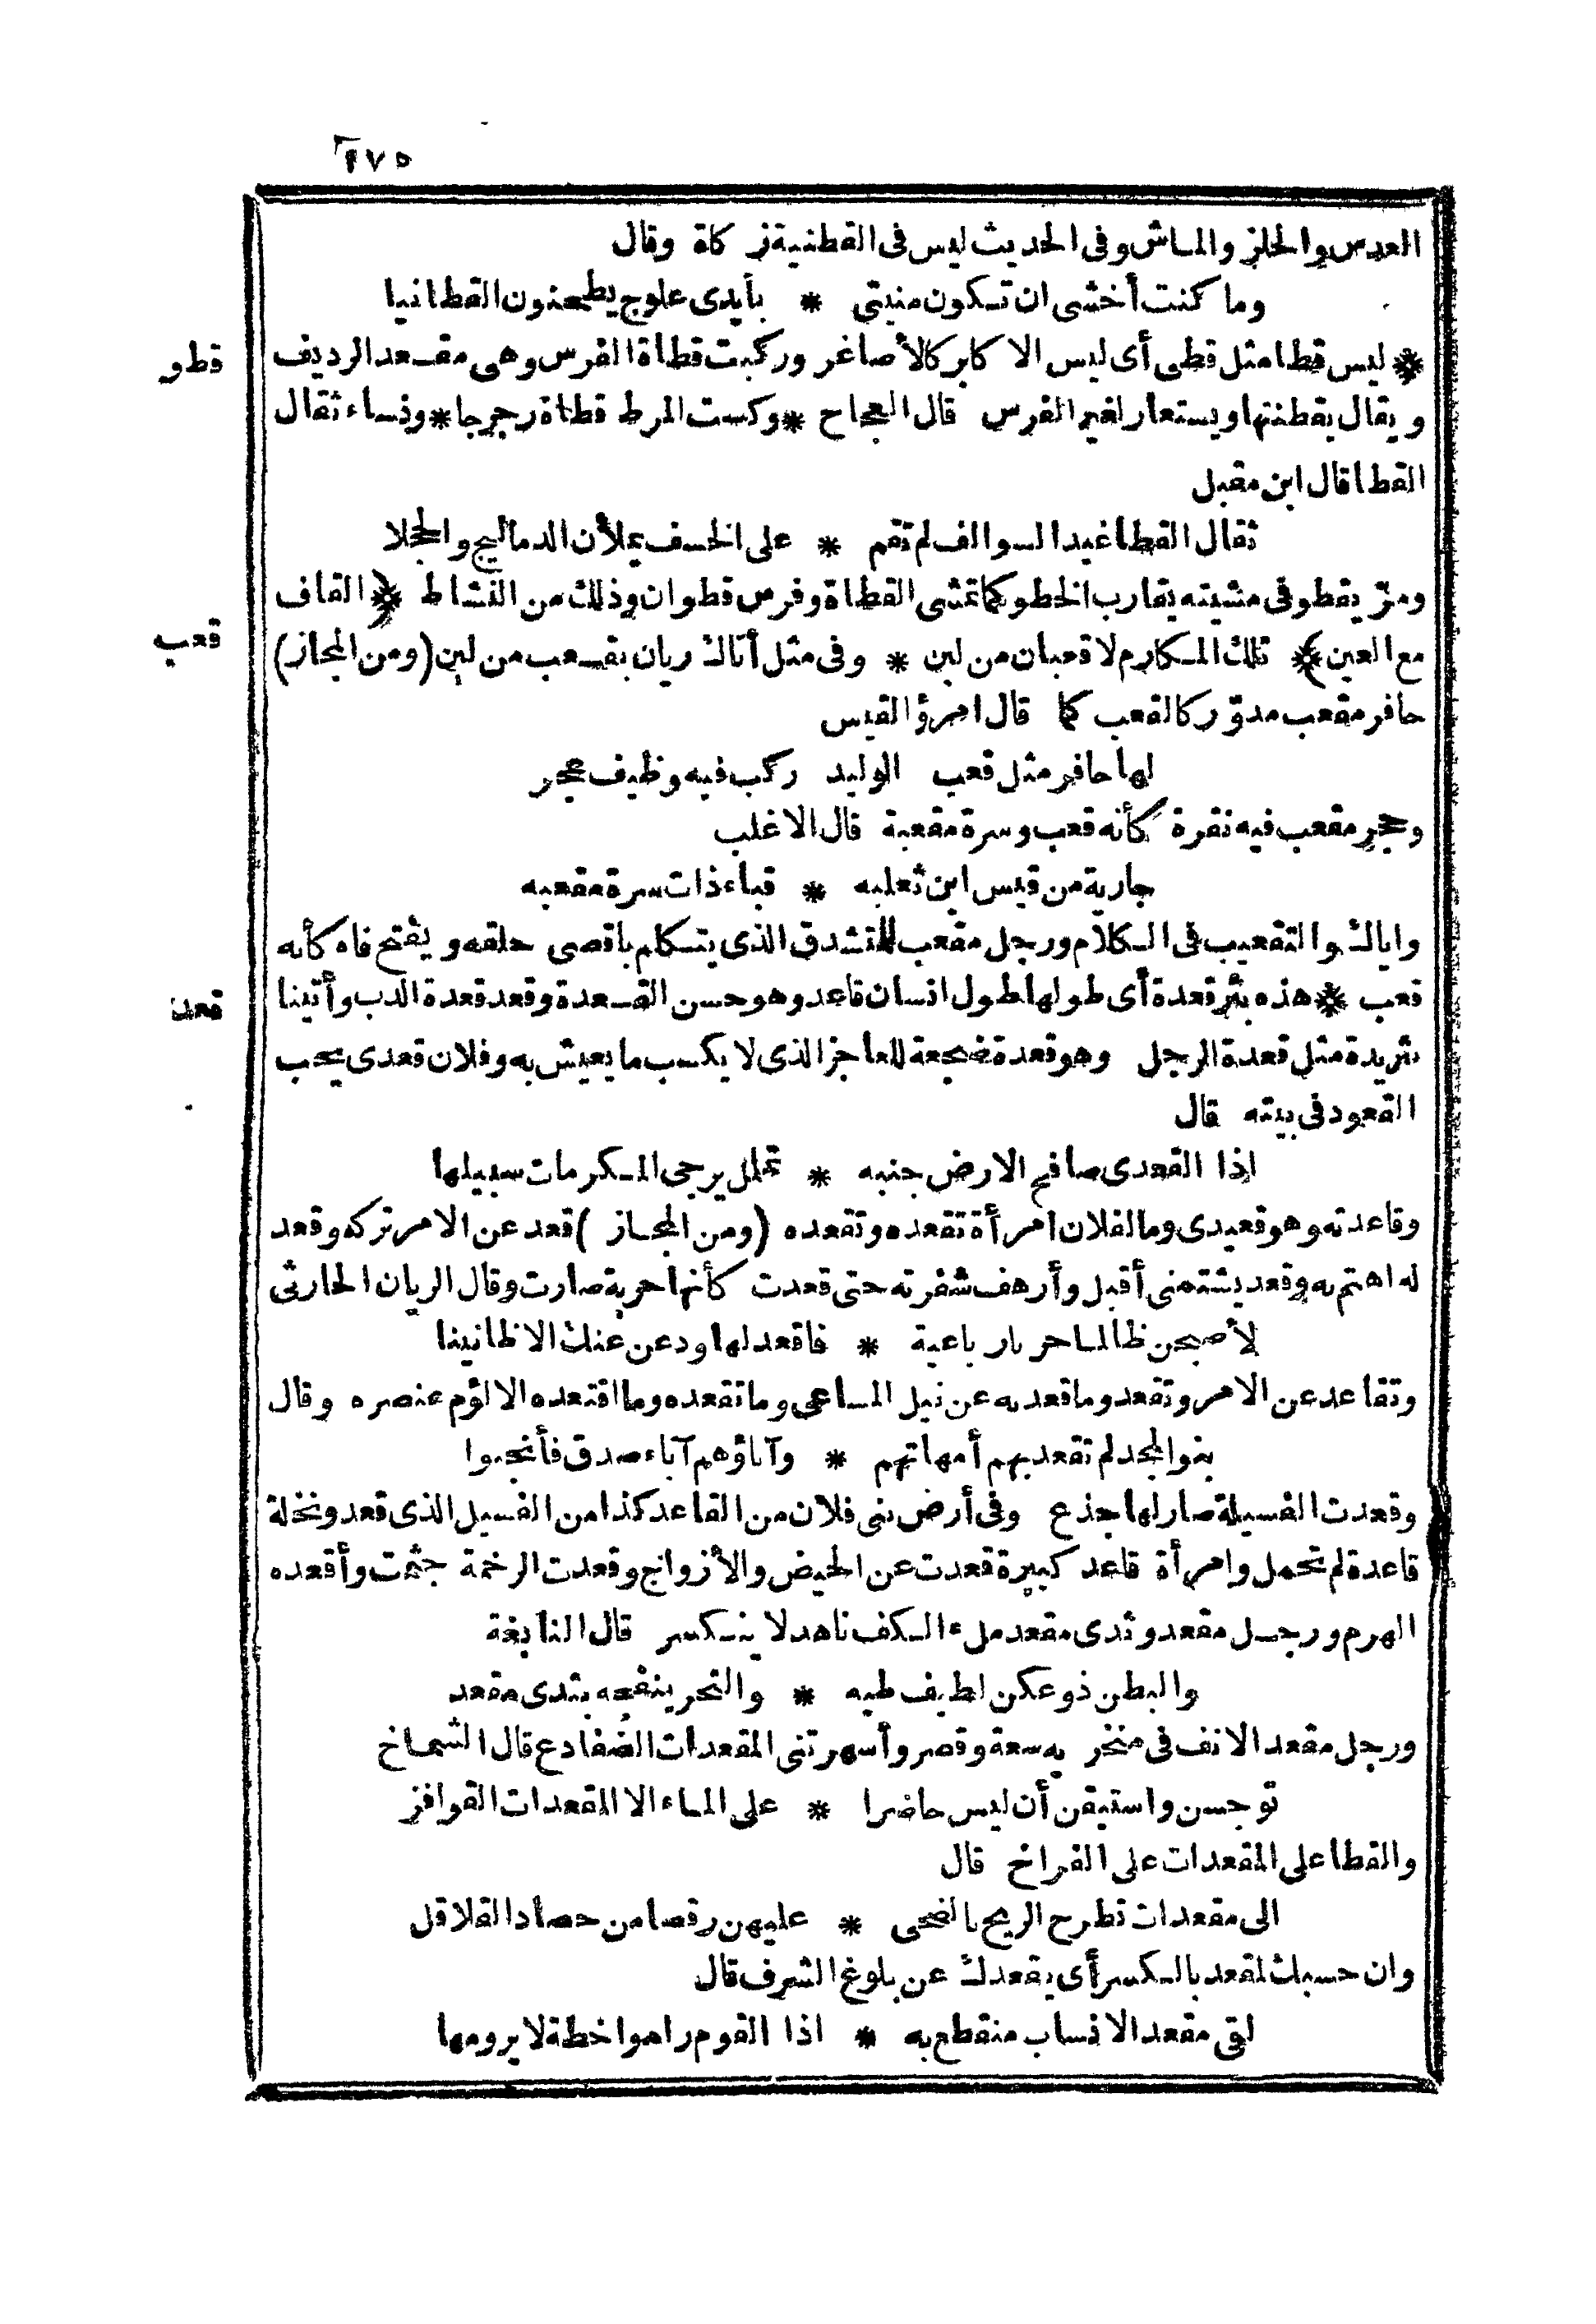 ٢٧٥
العدس والخلز والماش وفى الحديث ليس فى القطنية زكاة وقال
وما كنت أخشى ان تكون منيتى * بأيدى علوج يطحنون القطانيا
قطو
* ليس قطا مثل قطى أى ليس الا كابر كالأصاغر وركبت قطاة الفرس وهى مقعد الرديف
ويقال يقطنتها ويستعار لغير الفرس قال العجاح * وكست المرط قطاة رجرجا * ونساء ثقال
القطا قال ابن مقبل
ثقال القطا غيد السوالف لم تقم * على الخسف يملأن الدماليج والحجلا
ومرّ يقطو فى مشيته يقارب الخطو كما تمشى القطاة وفرس قطوان وذلك من النشاط ﴿* القاف
قعب
مع العين *﴾ تلك المكارم لا قعبان من لبن * وفى مثل أتاك ريان بقعب من لبن (ومن المجاز)
حافر مقعب مدوّر كالقعب كما قال امرؤ القيس
لها حافر مثل قعب الوليد ركب فيه وظيف عجر
وحجر مقعب فيه نقرة كأنه قعب وسرة مقعبة قال الاغلب
جارية من قيس ابن ثعلبه * قباء ذات سرة مقعبه
واياك والتقعيب فى الكلام ورجل مقعب للمتشدق الذى يتكلم باقصى حلقه ويفتح فاه كأنه
قعد
قعب * هذه بئر قعدة أى طولها طول انسان قاعد وهو حسن القعدة وقعد قعدة الدب وأتينا
بثريدة مثل قعدة الرجل وهو قعدة ضجعة للعاجز الذى لا يكسب ما يعيش به وفلان قعدى يحب
القعود فى بيته قال
اذا القعدى صافح الارض جنبه * تململ يرجى المكرمات سبيلها
وقاعدته وهو قعيدى وما لفلان امرأة تقعده وتقعده (ومن المجاز) قعد عن الامر تركه وقعد
له اهتم به وقعد يشتمنى أقبل وأرهف شفرته حتى قعدت كأنها حربة صارت وقال الريان الحارثى
لأصبحن ظالما حربا رباعية * فاقعد لها ودعن عنك الاظانينا
وتقاعد عن الامر وتقعد وما قعد به عن نيل المساعى وما تقعده وما اقتعده الا لؤم عنصره وقال
بنو المجد لم تقعد بهم أمهاتهم * وآباؤهم آباء صدق فأنجبوا
وقعدت الفسيلة صار لها جذع وفى أرض بنى فلان من القاعد كذا من الفسيل الذى قعد ونخلة
قاعدة لم تحمل وامرأة قاعد كبيرة قعدت عن الحيض والأزواج وقعدت الرخمة جثمت وأقعده
الهرم ورجل مقعد وثدى مقعد ملء الكف ناهد لا ينكسر قال النابغة
والبطن ذو عكن لطيف طيه * والنحر ينفجه بثدى مقعد
ورجل مقعد الانف فى منخريه سعة وقصر وأسهرتنى المقعدات الضفادع قال الشماخ
توجسن واستيقن أن ليس حاضرا * على الماء الا المقعدات القوافز
والقطا على المقعدات على الفراخ قال
الى مقعدات تطرح الريح بالضحى * عليهن رقصا من حصاد القلاقل
وان حسبك لمقعد بالكسر أى يقعدك عن بلوغ الشرف قال
لقى مقعد الانساب منقطع به * اذا القوم راموا خطة لا يرومها